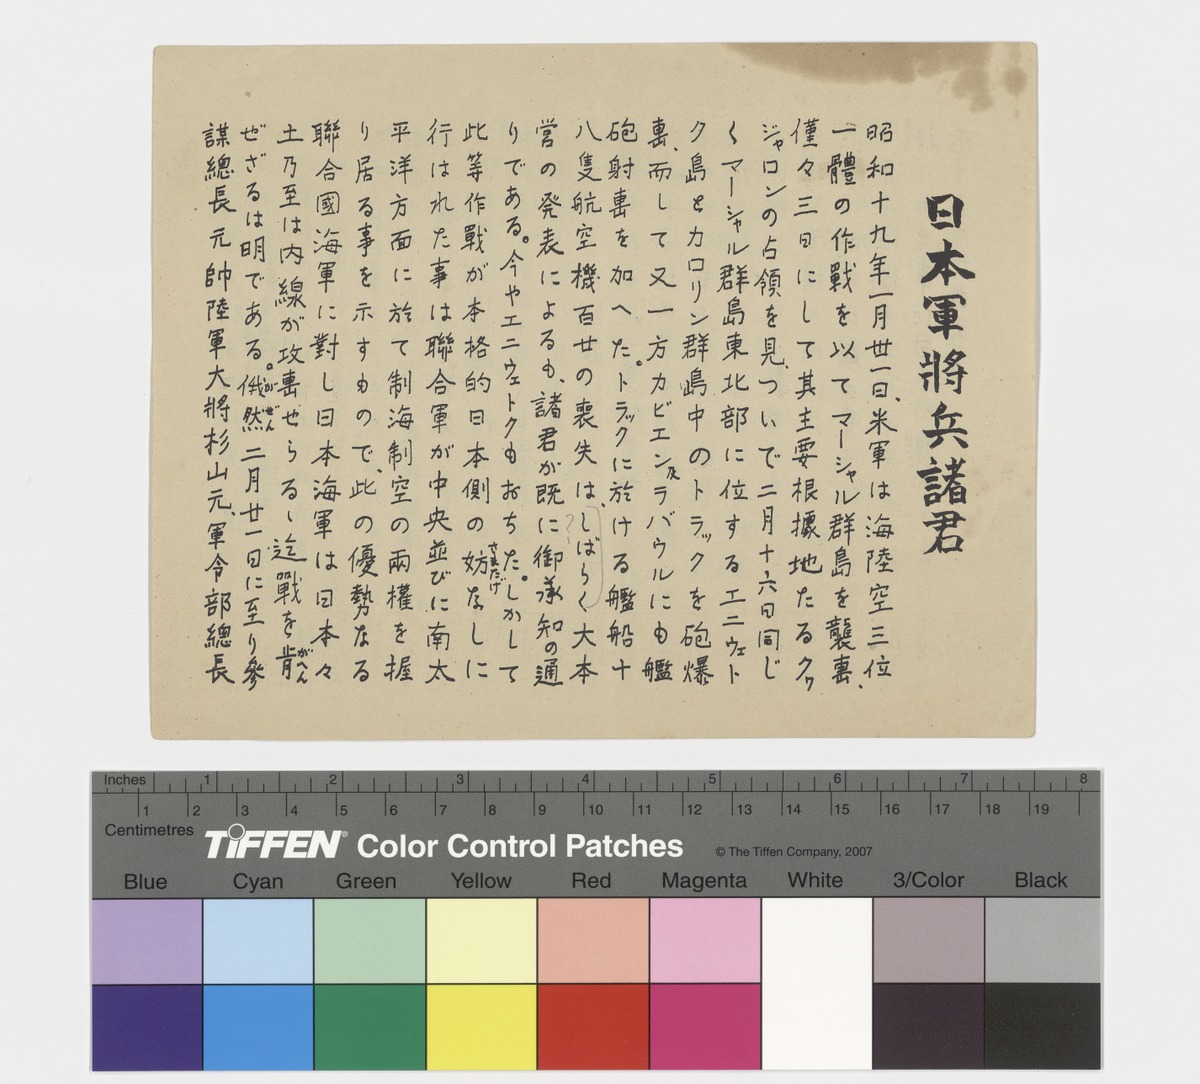 日本軍將兵諸君
昭和十九年一月卅一日、米軍は海陸空三位
一體の作戰を以てマーシャル群島を襲轟、
僅々三日にして其主要根據地たるクヮ
ジャロンの占領を見、ついで二月十六日同じ
くマーシャル群島東北部に位するエニウェト
ク島とカロリン群島中のトラックを砲爆
轟、而して又一方カビエン及ラバウルにも艦
砲射轟を加へた。トラックに於ける艦船十
八隻航空機百廿の喪失は、しばらく大本
営の発表によるも、諸君が既に御承知の通
りである。今やエニウェトクもおちた。しかして
此等作戰が本格的日本側の妨なしに
さまたげ
行はれた事は聯合軍が中央並びに南太
平洋方面に於て制海制空の兩權を握
り居る事を示すもので、此の優勢なる
聯合國海軍に對し日本海軍は日本々
土乃至は内線が攻轟せらるゝ迄戰を肯
がへん
ぜざるは明である。俄然二月廿一日に至り參
がぜん
謀總長元帥陸軍大將杉山元、軍令部總長
Inches 1 2 3 4 5 6 7 8
1 2 3 4 5 6 7 8 9 10 11 12 13 14 15 16 17 18 19
Centimetres
TIFFEN® Color Control Patches © The Tiffen Company, 2007
Blue Cyan Green Yellow Red Magenta White 3/Color Black